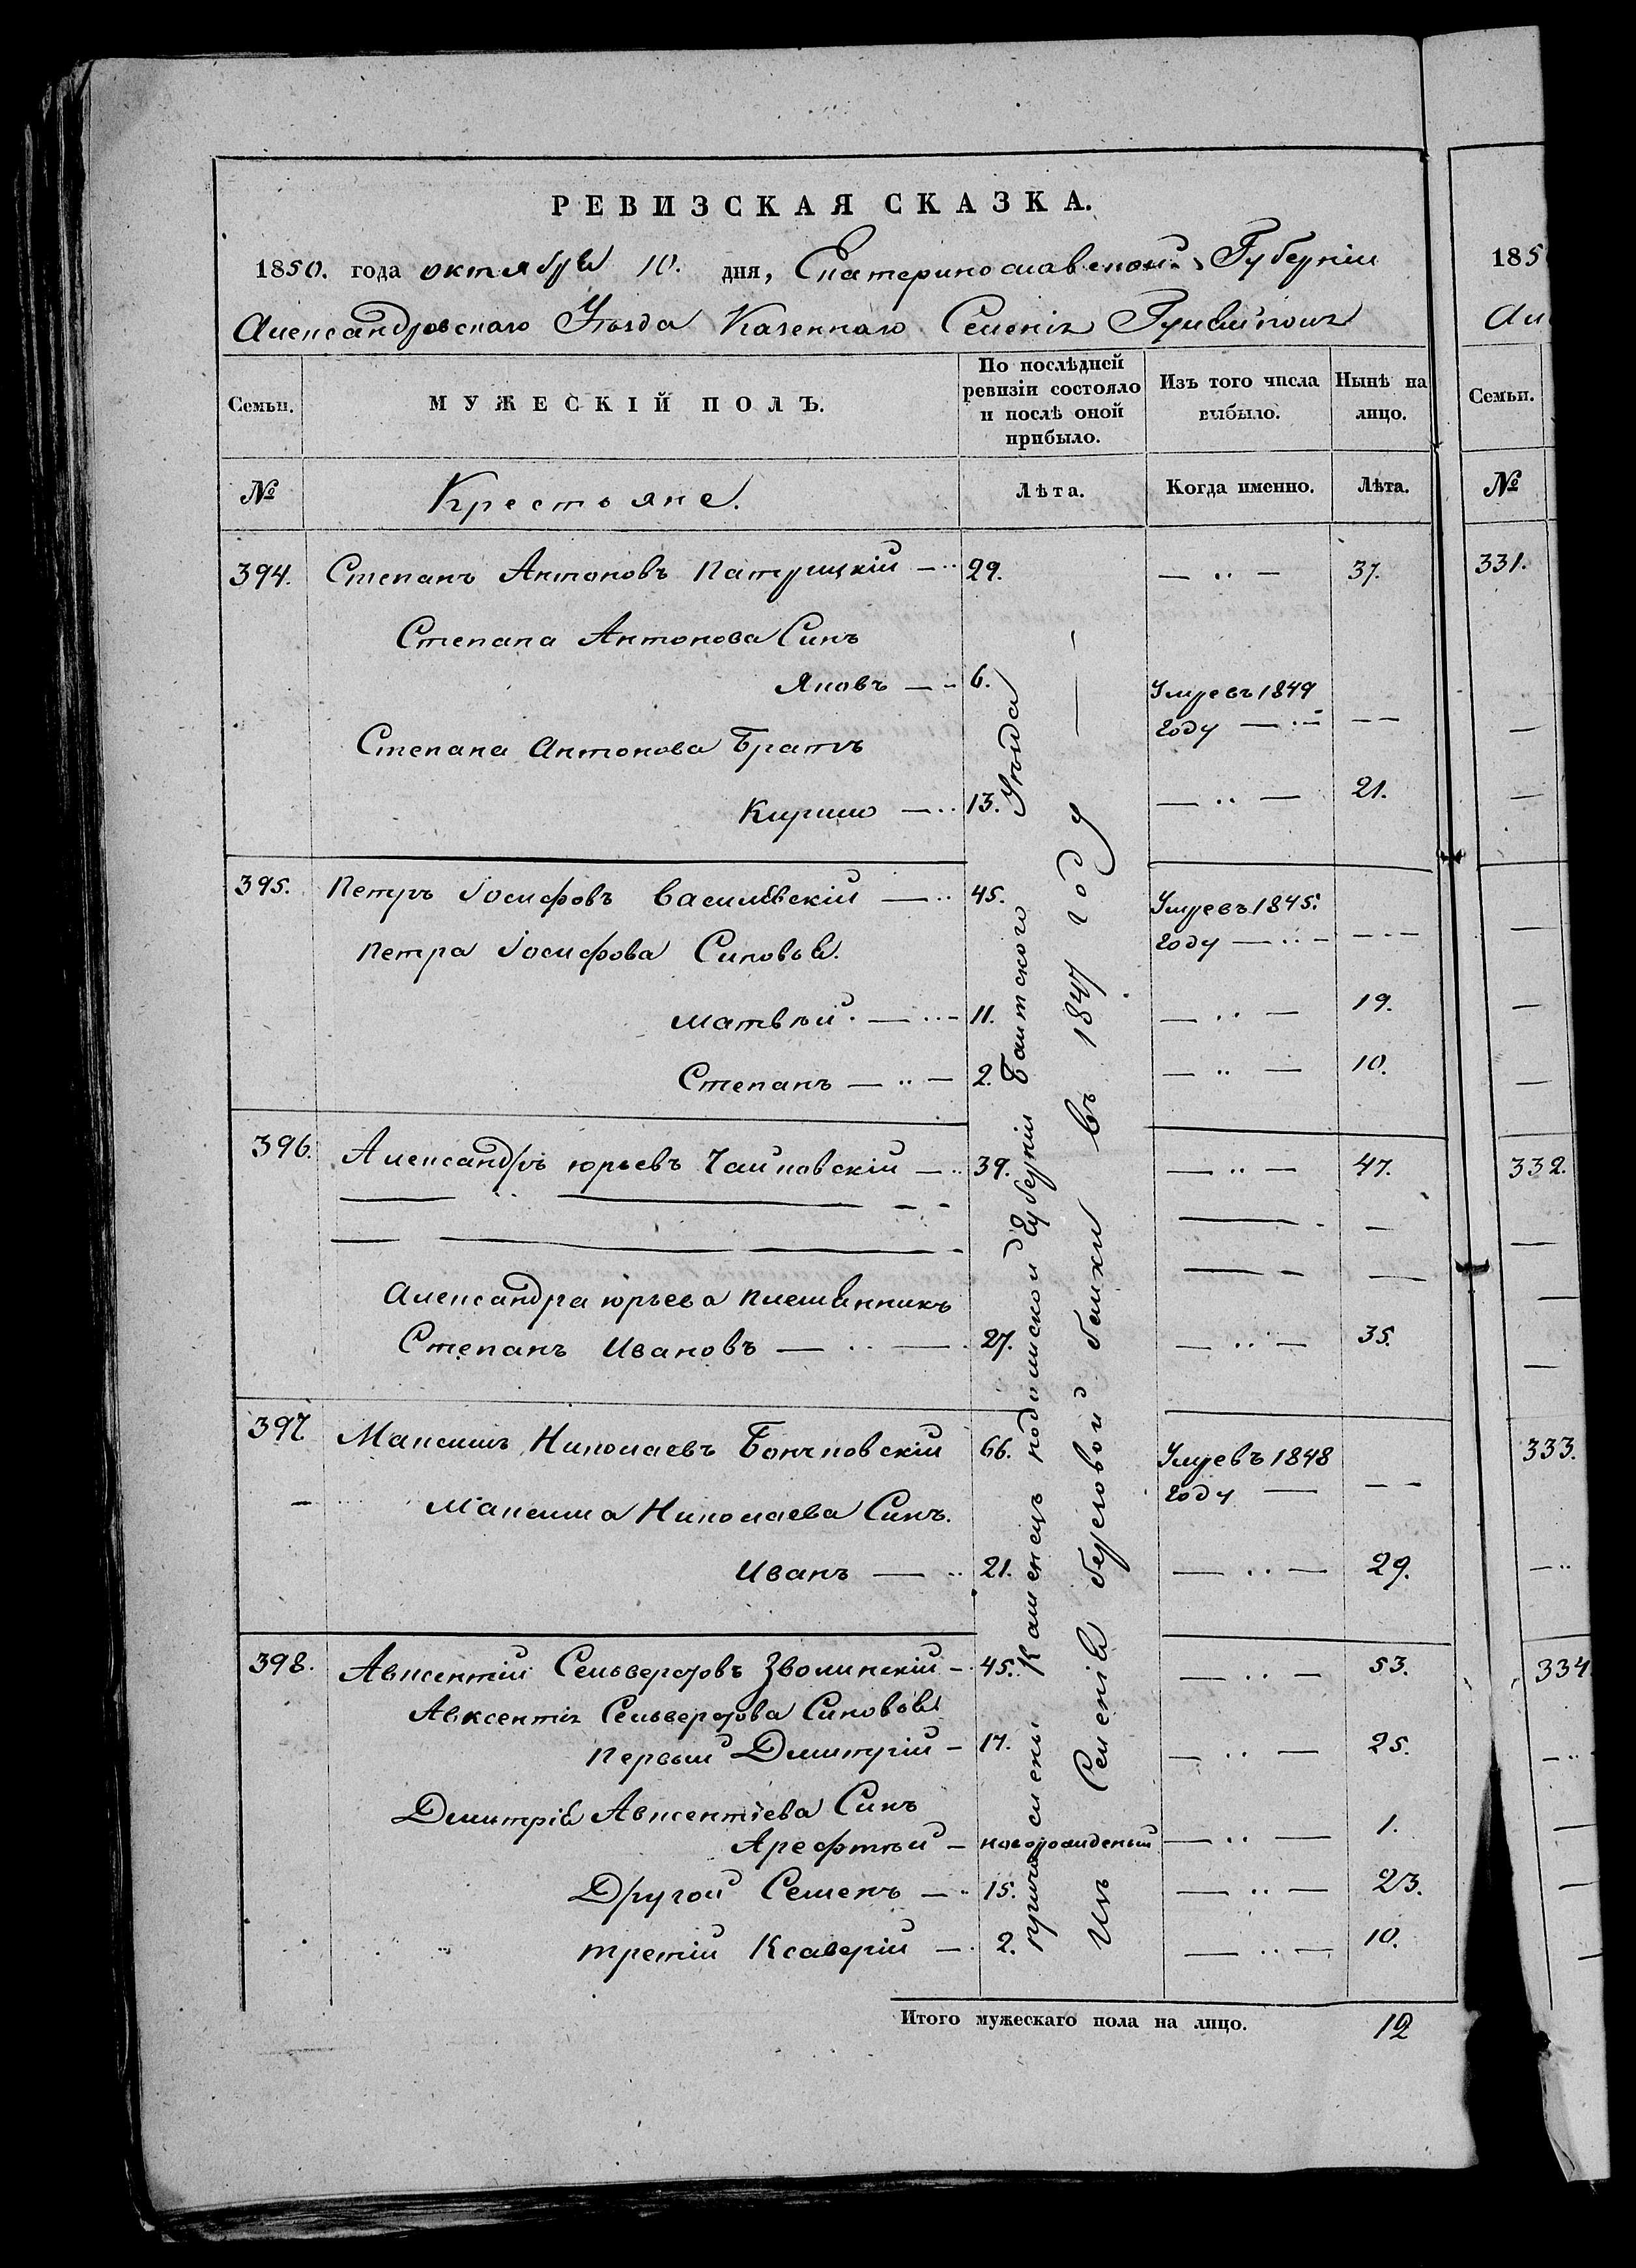 РЕВИЗСКАЯ СКАЗКА.
1850. года октября 10. дня, Екатеринославской Губерніи
Александровскаго Уѣзда Казеннаго Селенія Гуляйполя
Семьи.
МУЖЕСКІЙ ПОЛЪ.
По послѣдней
ревизіи состояло
и послѣ оной
прибыло.
Изъ того числа
выбыло.
Нынѣ на
лицо.
№
Крестьяне.
Лѣта.
Когда именно.
Лѣта.
394. Степанъ Антоновъ 29. — .. — 37.
Степана Антонова Синъ
Яковъ — .. 6. Умревъ 1849
году — .. — — —
Степана Антонова Братъ
Кирило — .. 13. — .. — 21.
395. Петръ Іосифовъ Василѣвскій — .. 45. Умревъ 1845.
Петра Іосифова Синовья. году — .. — — .. —
Матвѣй. — .. — 11. — .. — 19.
Степанъ — .. — 2. — .. — 10.
396. Александръ Юрьевъ Чайковскій — .. 39. — .. — 47.
Александра Юрьева племянникъ
Степанъ Ивановъ — .. — 27. — .. — 35.
397. Максимъ Николаевъ Бончковскій 66. Умревъ 1848
году — — —
Максима Николаева Синъ.
Иванъ — .. 21. — .. — 29.
398. Авксентій Сельверстовъ Зволинскій — 45. — .. — 53.
Авксентія Сельверстова Синовья
Первый Дмитрій — 17. — .. — 25.
Дмитрія Авксентіева Синъ
Арефтѣй — новорожденый — .. — 1.
Другой Семенъ — .. 15. — .. — 23.
третій Ксаверій — . 2. — .. — 10.
причисленъ Каменецъ подольской Губерніи Балтского Уѣзда
Изъ Селенія береговой балки въ 1847 году —
Итого мужескаго пола на лицо. 12
185
Семьи.
№
331.
332.
333.
334